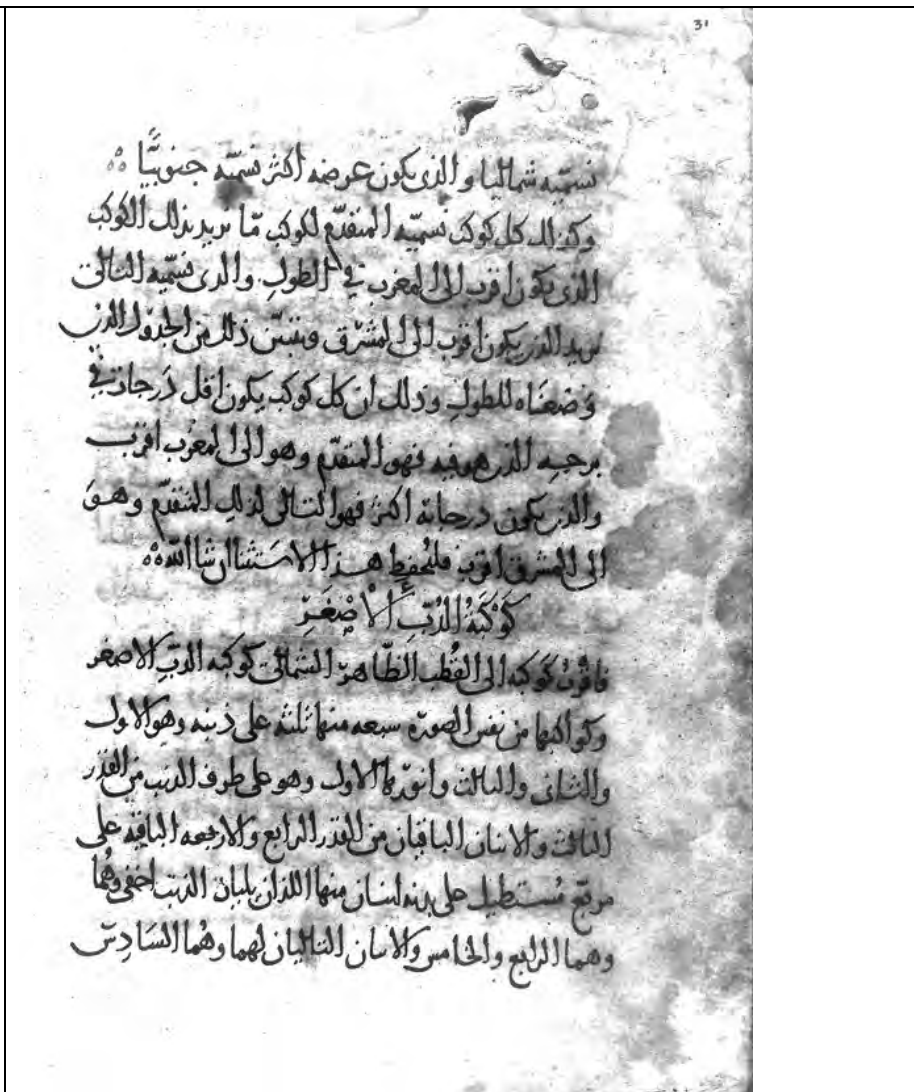 31
نسميه شماليا والذى يكون عرضه اكثر نسميه جنوبيا ه
وكذلك كل كوكب نسميه المتقدم لكوكب مّا نريد بذلك الكوكب
الذى يكون اقرب الى المغرب في الطول والذى نسميه التالى
نريد الذى يكون اقرب الى المشرق ونتبين ذلك من الجدول الذى
وضعناه للطول وذلك ان كل كوكب يكون اقل درجات في
برجه الذى هو فيه فهو المتقدم وهو الى المغرب اقرب
والذى يكون درجاته اكثر فهو التالى لذلك المتقدم وهو
الى المشرق اقرب فليحفظ هذا الاستثنا ان شا الله ه
كَوْكَبَةُ الدُّبِّ الأَصْغَرِ
فاقرب كوكبه الى القُطب الظّاهر الشمالى كوكبه الدبّ الاصغر
وكواكبها من نفس الصورة سبعه منها ثلثه على ذنبه وهو الاول
والثانى والثالث وانورها الاول وهو على طرف الذنب من القدر
الثالث والاثنان الباقيان من القدر الرابع والاربعه الباقيه على
مربّع مُستطيل على بدنه اثنان منها اللذان يليان الذنب اخفى وهُما
وهما الرابع والخامس والاثنان التاليان لهما وهُما السَادِس